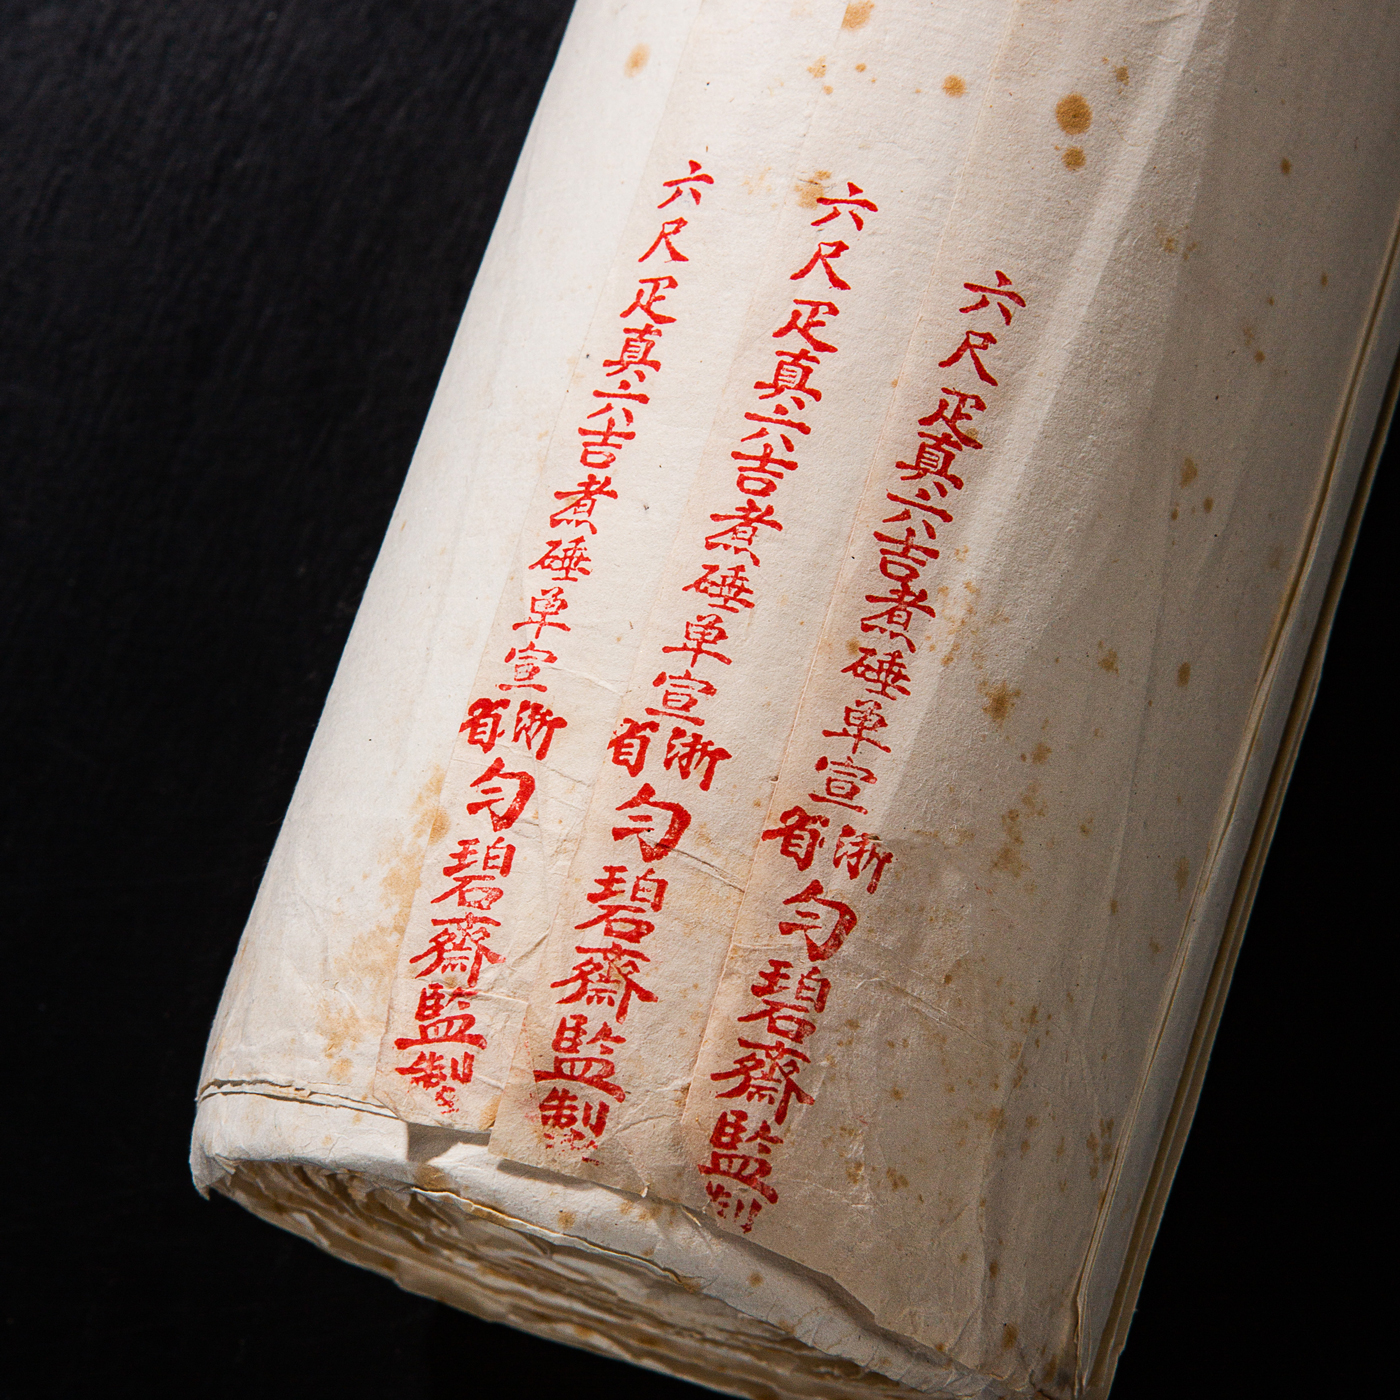 六尺疋真六吉煮硾单宣浙省匀碧齋監製
六尺疋真六吉煮硾单宣浙省匀碧齋監製
六尺疋真六吉煮硾单宣浙省匀碧齋監製